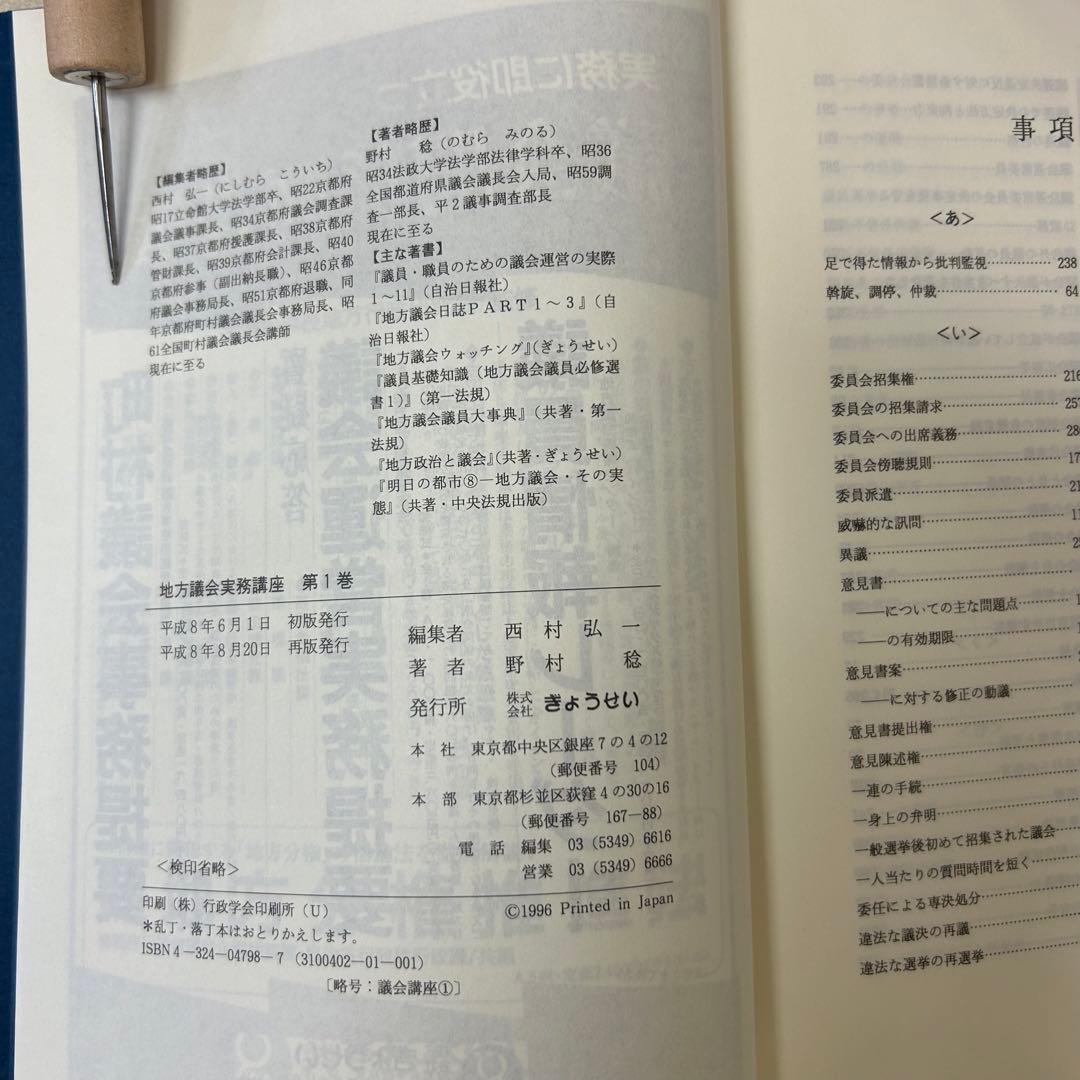 【編集者略歴】
西村　弘一（にしむら　こういち）
昭17立命館大学法学部卒、昭22京都府
議会議事課長、昭34京都府議会調査課
長、昭37京都府援護課長、昭38京都府
管財課長、昭39京都府会計課長、昭40
京都府参事（副出納長職）、昭46京都
府議会事務局長、昭51京都府退職、同
年京都府町村議会議長会事務局長、昭
61全国町村議会議長会講師
現在に至る
【著者略歴】
野村　稔（のむら　みのる）
昭34法政大学法学部法律学科卒、昭36
全国都道府県議会議長会入局、昭59調
査一部長、平２議事調査部長
現在に至る
【主な著書】
『議員・職員のための議会運営の実際
１〜11』（自治日報社）
『地方議会日誌ＰＡＲＴ１〜３』（自
治日報社）
『地方議会ウォッチング』（ぎょうせい）
『議員基礎知識（地方議会議員必修選
書１）』（第一法規）
『地方議会議員大事典』（共著・第一
法規）
『地方政治と議会』（共著・ぎょうせい）
『明日の都市⑧―地方議会・その実
態』（共著・中央法規出版）
地方議会実務講座　第１巻
平成８年６月１日　初版発行
平成８年８月20日　再版発行
編集者　西村弘一
著者　野村　稔
発行所　株式会社　ぎょうせい
本社　東京都中央区銀座７の４の12
（郵便番号　104）
本部　東京都杉並区荻窪４の30の16
（郵便番号　167―88）
電話　編集　03（5349）6616
営業　03（5349）6666
＜検印省略＞
印刷（株）行政学会印刷所（U）
©1996 Printed in Japan
＊乱丁・落丁本はおとりかえします。
ISBN４―324―04798―７（3100402―01―001）
〔略号：議会講座①〕
事項
＜あ＞
足で得た情報から批判監視……………238
斡旋、調停、仲裁……………64
＜い＞
委員会招集権……………216
委員会の招集請求……………257
委員会への出席義務……………
委員会傍聴規則……………
委員派遣……………
威嚇的な訊問……………
異議……………
意見書
――についての主な問題点……………
――の有効期限……………
意見書案
――に対する修正の動議……………
意見書提出権……………
意見陳述権……………
一連の手続……………
一身上の弁明……………
一般選挙後初めて招集された議会……
一人当たりの質問時間を短く……………
委任による専決処分……………
違法な議決の再議……………
違法な選挙の再選挙……………